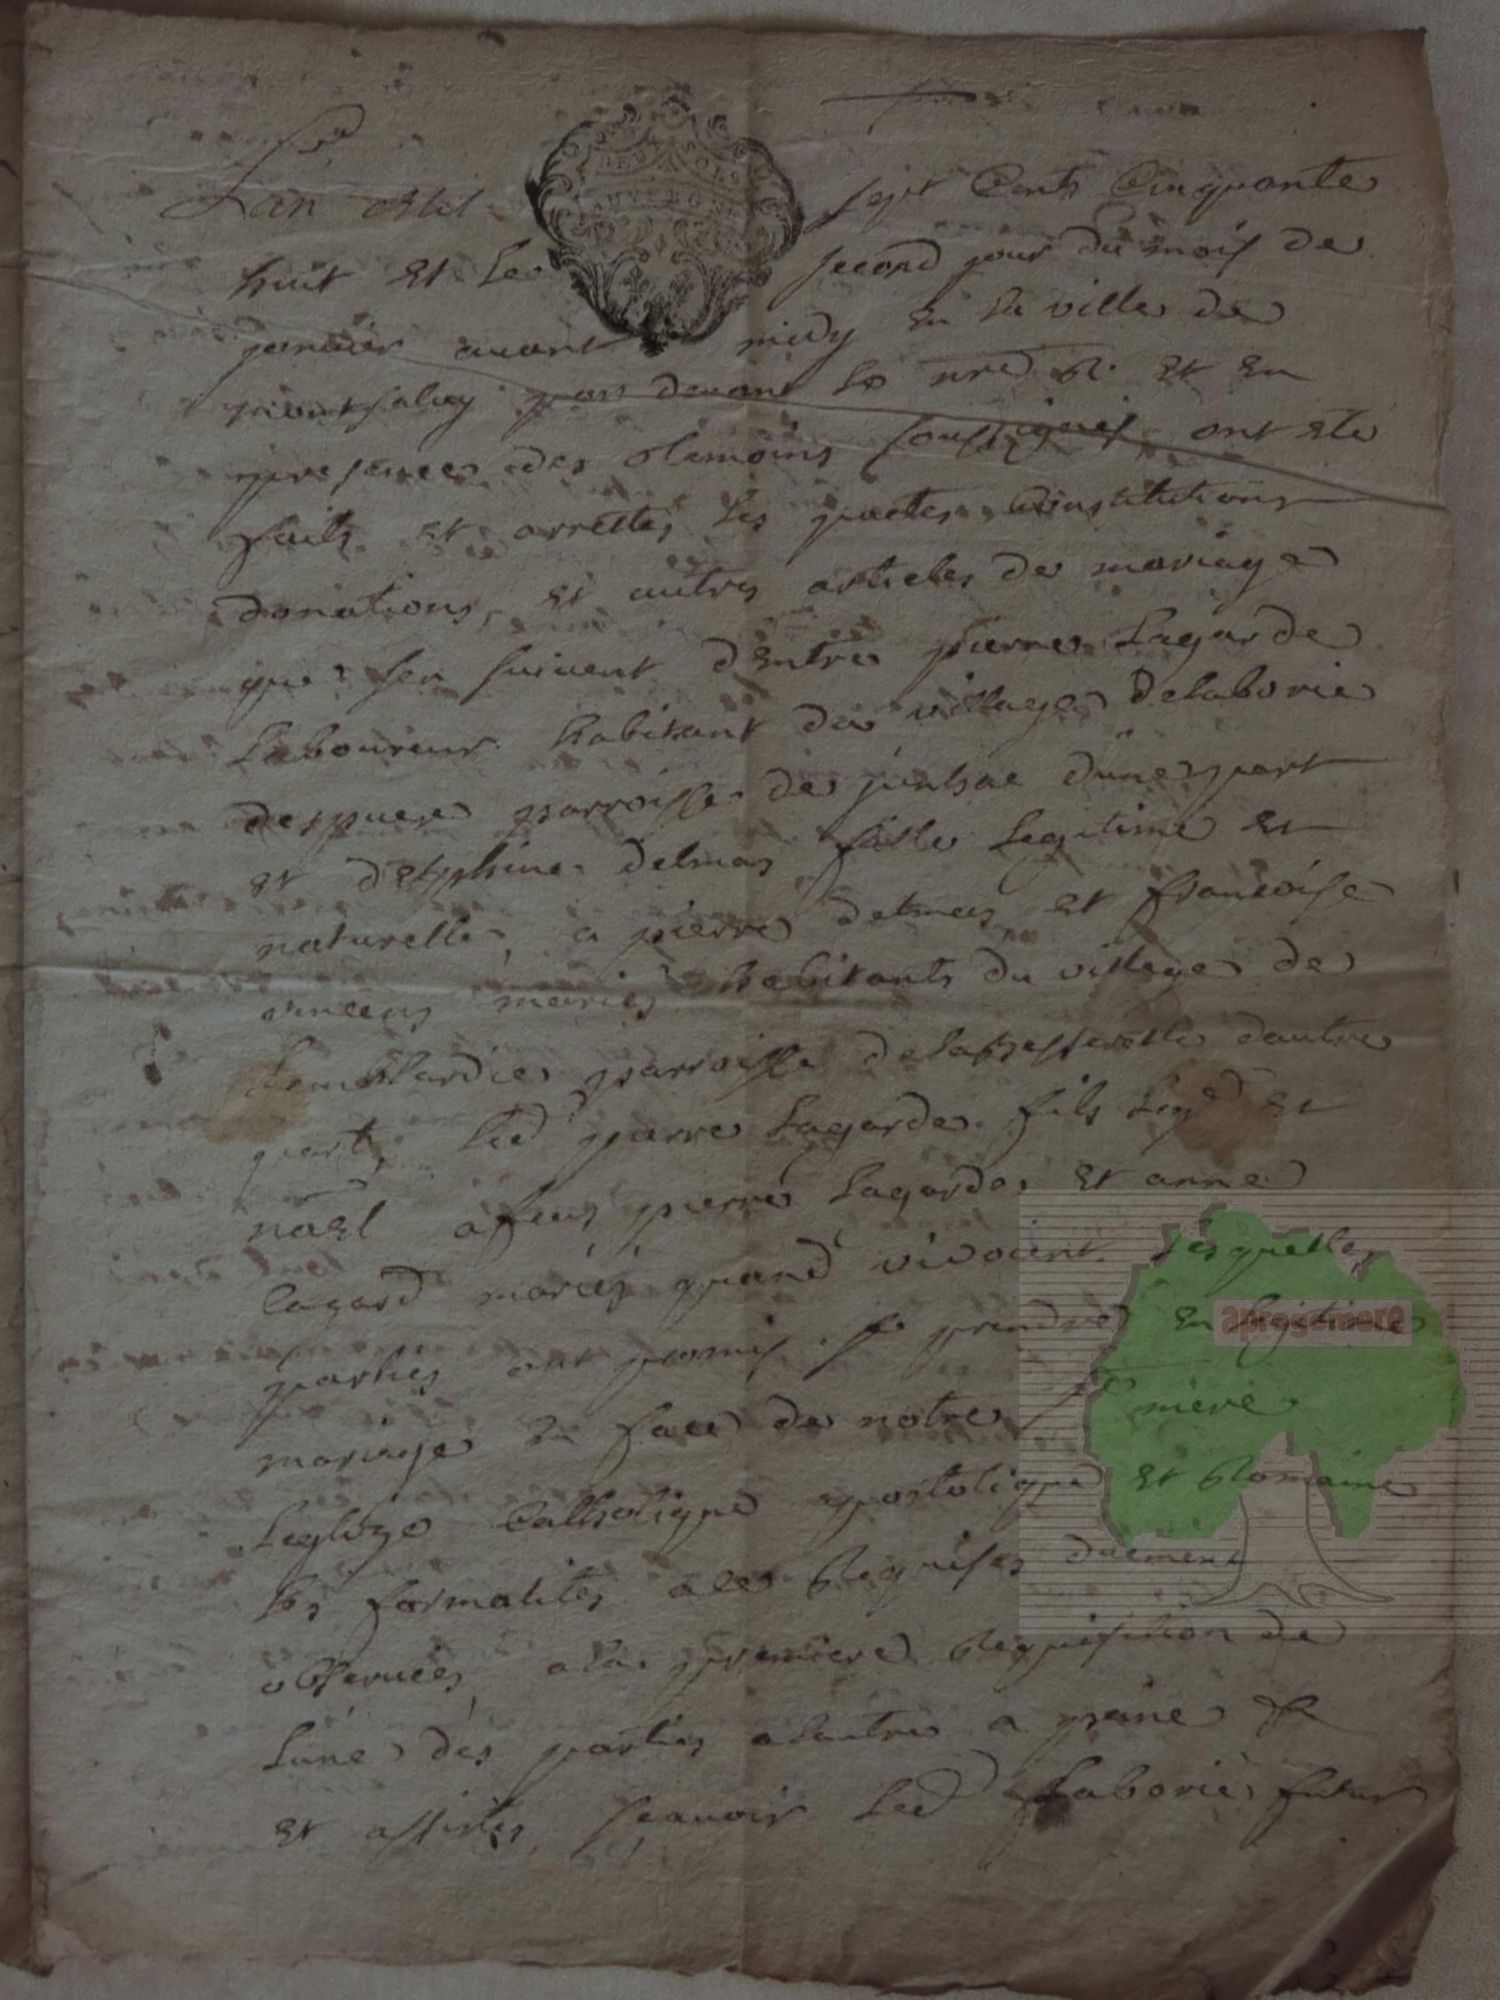 DEUX SOLS
AUVERGNE
Lan Mil sept Cents Cinquante
huit et le second jour du mois de
janvier avant midy en la ville de
montsalvy par devant le nre R. et en
presence des temoins soussignés, ont été
faits et arrettés les pactes constitutions
donations, et autres articles de mariage
que sen suivent d'Entre pierre Lagarde
Laboureur habitant du village delaborie
despuere parroisse de junhac dune part
et delphine delmas fille legitime et
naturelle, a pierre delmas et francoise
maries habitants du village de
parroisse delabesserette dautre
part, led pierre Lagarde fils leg et
natl afeus pierre Lagarde et anne
lagard mariés quand vivoient. Lesquelles
parties ont promis se prendre en legitime
mariage en face de notre Ste mere
Leglize Catholique apostolique et Romaine
les formalités a ce Requises duement
observées, ala premiere Requisition de
lune des parties alautre a peine &
et assistés, scavoir led Laborie futur
aprogemere